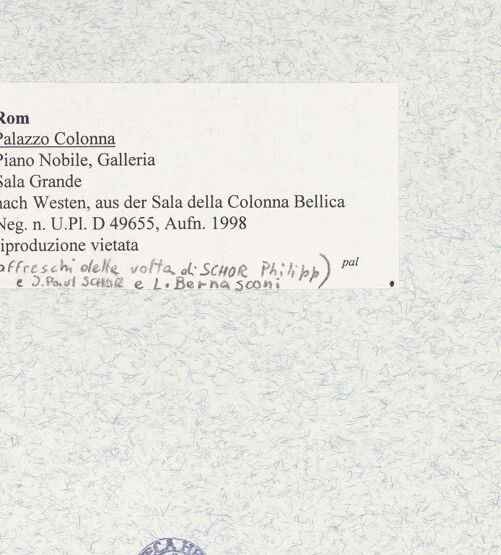 Rom
Palazzo Colonna
Piano Nobile, Galleria
Sala Grande
nach Westen, aus der Sala della Colonna Bellica
Neg. n. U.Pl. D 49655, Aufn. 1998
riproduzione vietata
affreschi delle volta di SCHOR Philipp)
pal
e J. Paul SCHOR e L. Bernasconi
TECA HE